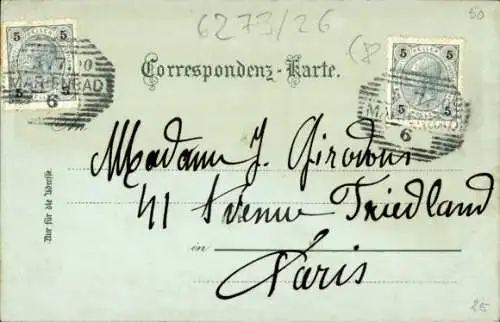 6273/26
50
(8
5 5
HELLER
5 5
7 00
MARIENBAD
6
Correspondenz-Karte.
5 5
HELLER
5 5
6
Madame J. Girodons
41 Avenue Friedland
in
Paris
Nur für die Adresse.
25